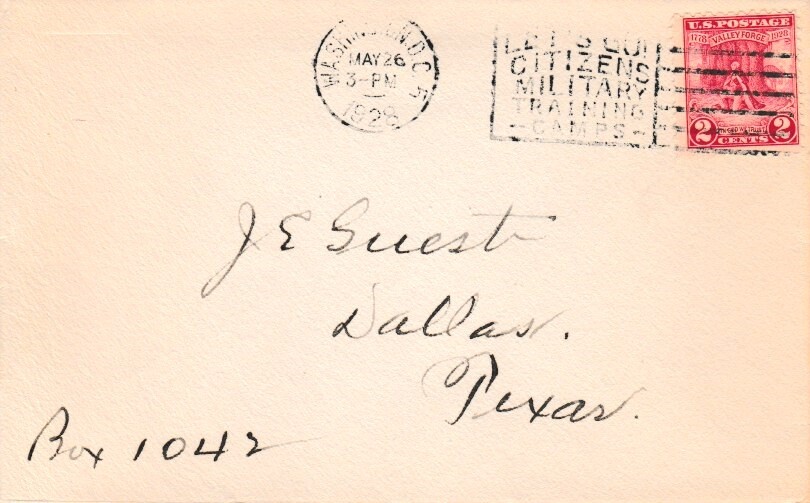 WASHINGTON, D.C. 5
MAY 26
3-PM
1928
LET'S GO!
CITIZENS
MILITARY
TRAINING
-CAMPS-
U.S. POSTAGE
1778 VALLEY FORGE 1928
IN GOD WE TRUST
2 CENTS 2
J E Guest
Dallas.
Texas.
Box 1042